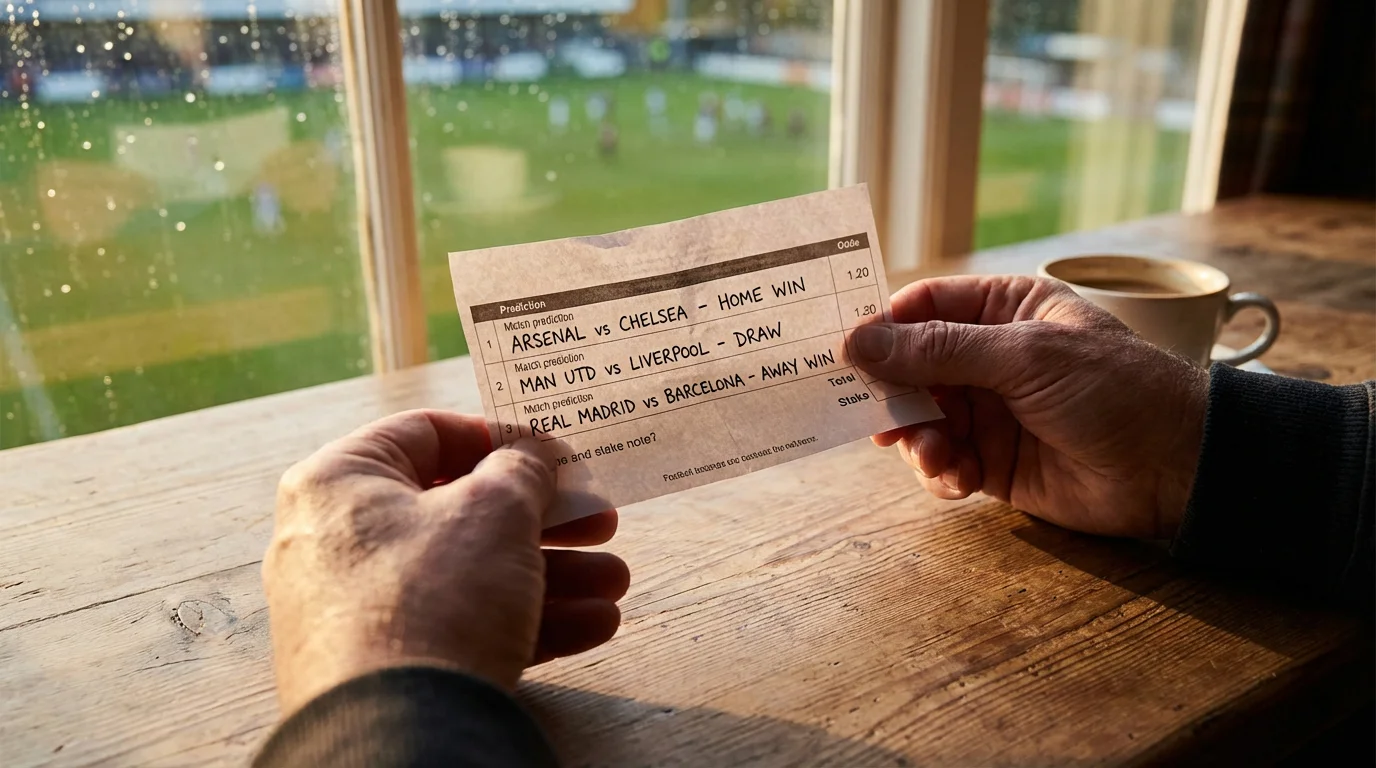 Prediction
Odds
Match prediction
1 ARSENAL vs CHELSEA - HOME WIN 1.20
Match prediction
2 MAN UTD vs LIVERPOOL - DRAW 1.30
Match prediction
3 REAL MADRID vs BARCELONA - AWAY WIN
Total
Stake
and stake note?